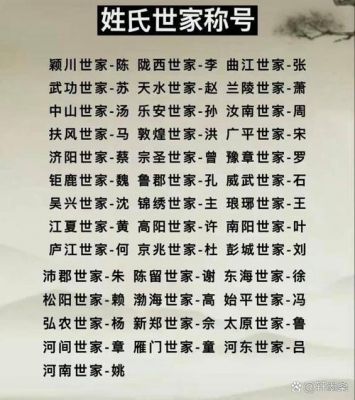 姓氏世家称号
颖川世家-陈 陇西世家-李 曲江世家-张
武功世家-苏 天水世家-赵 兰陵世家-萧
中山世家-汤 乐安世家-孙 汝南世家-周
扶风世家-马 敦煌世家-洪 广平世家-宋
济阳世家-蔡 宗圣世家-曾 豫章世家-罗
钜鹿世家-魏 鲁郡世家-孔 威武世家-石
吴兴世家-沈 锦绣世家-主 琅琊世家-王
江夏世家-黄 高阳世家-许 南阳世家-叶
庐江世家-何 京兆世家-杜 彭城世家-刘
沛郡世家-朱 陈留世家-谢 东海世家-徐
松阳世家-赖 渤海世家-高 始平世家-冯
弘农世家-杨 新郑世家-佘 太原世家-鲁
河间世家-章 雁门世家-童 河东世家-吕
河南世家-姚